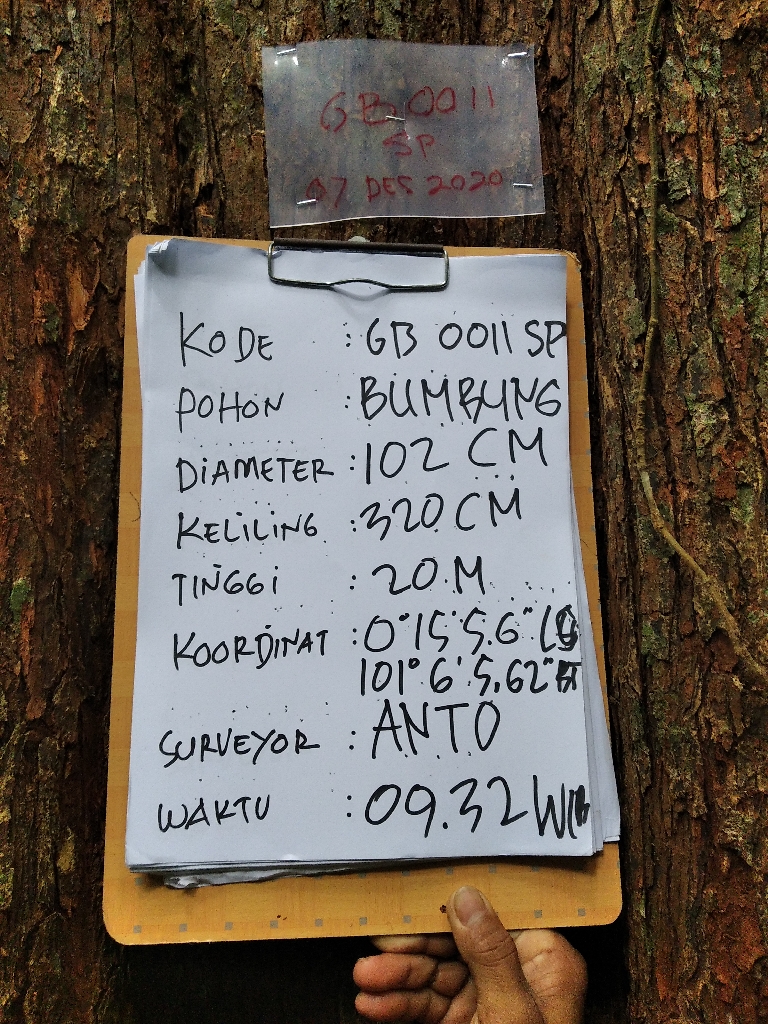 GB 0011
SP
07 DES 2020
KODE : GB 0011 SP
POHON : BUMBUNG
DIAMETER : 102 CM
KELILING : 320 CM
TINGGI : 20 M
KOORDINAT : 0°15'5.6"
101°6'5.62" BT
SURVEYOR : ANTO
WAKTU : 09.32 WIB